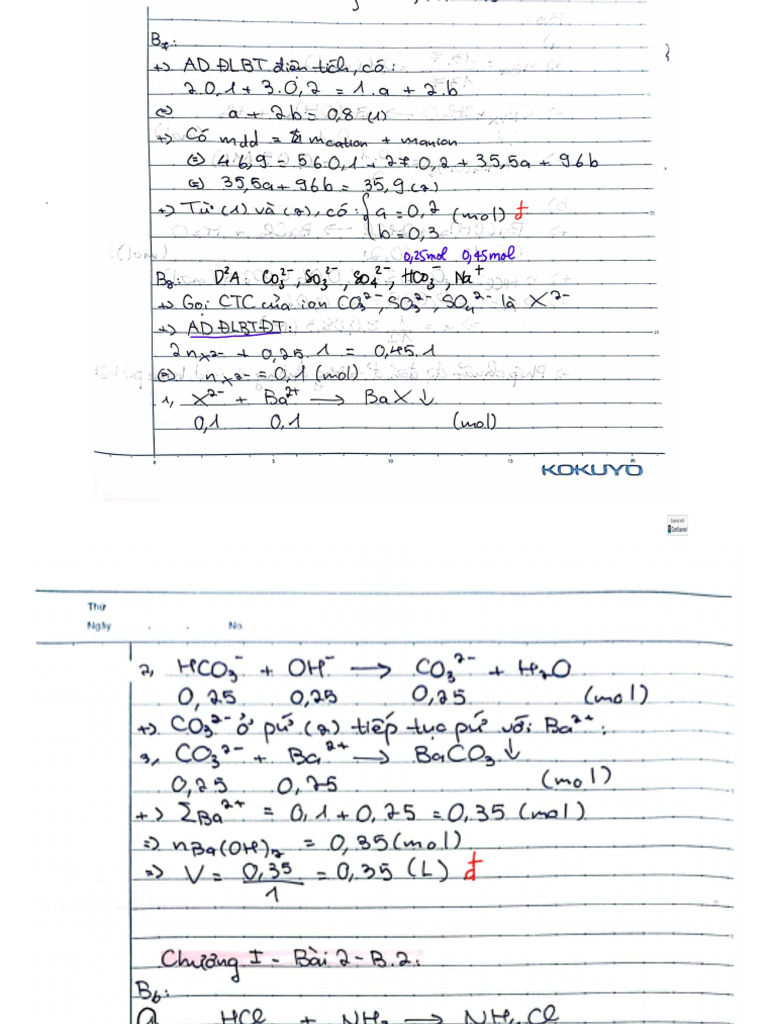 B7:
+) AD ĐLBT điện tích, có:
2.0,1 + 3.0,2 = 1.a + 2.b
(=) a + 2b = 0,8 (1)
+) Có mdd = mcation + manion
(=) 46,9 = 56.0,1 + 27.0,2 + 35,5a + 96b
(=) 35,5a + 96b = 35,9 (2)
+) Từ (1) và (2), có: { a = 0,2 (mol) đ
b = 0,3
0,25mol 0,45mol
B8: D²A: CO₃²⁻, SO₃²⁻, SO₄²⁻, HCO₃⁻, Na⁺
+) Gọi CTC của ion CO₃²⁻, SO₃²⁻, SO₄²⁻ là X²⁻
+) AD ĐLBTĐT:
2nX²⁻ + 0,25.1 = 0,45.1
(=) nX²⁻ = 0,1 (mol)
1, X²⁻ + Ba²⁺ → BaX↓
0,1 0,1 (mol)
0 5 10 15 20
KOKUYO
CamScanner
Thứ
Ngày . . No
2, HCO₃⁻ + OH⁻ → CO₃²⁻ + H₂O
0,25 0,25 0,25 (mol)
+) CO₃²⁻ ở pứ (2) tiếp tục pứ với Ba²⁺:
3, CO₃²⁻ + Ba²⁺ → BaCO₃↓
0,25 0,25 (mol)
+) ΣBa²⁺ = 0,1 + 0,25 = 0,35 (mol)
=) nBa(OH)₂ = 0,35 (mol)
=) V = 0,35/1 = 0,35 (L) đ
Chương I - Bài 2 - B.2:
B6:
HCl + NH₃ → NH₄Cl